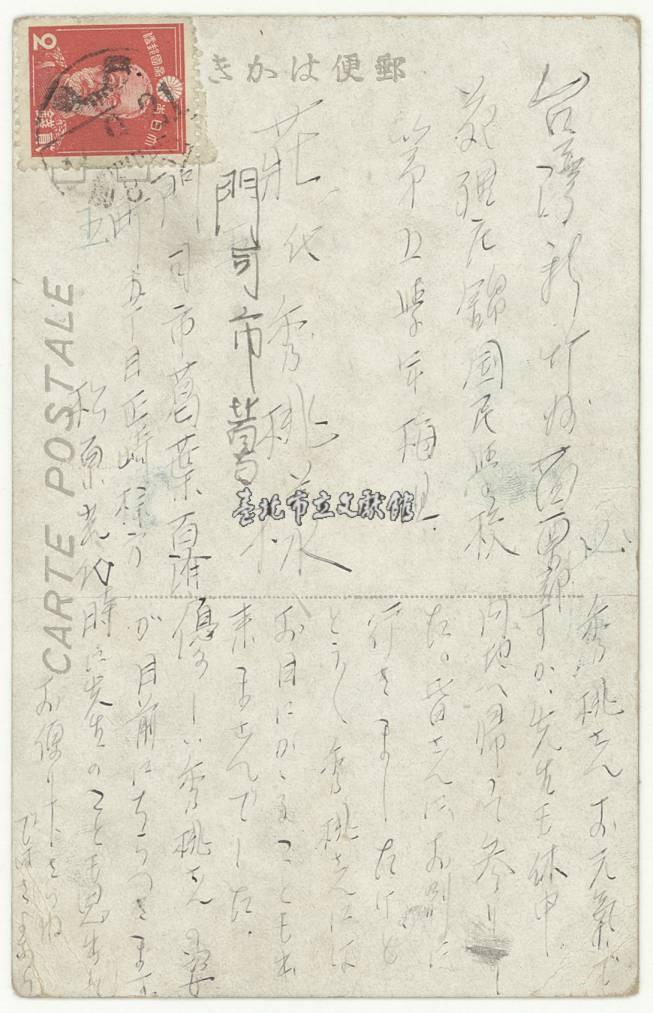 郵便はがき
大日本帝國郵便
2
貳錢
CARTE POSTALE
台湾新竹州苗栗郡
苑裡瓦窰國民學校
第五學年
莊代秀桃様
門司市葛
門司市葛葉百済
町五丁目正崎様方
松原
臺北市立文獻館
秀桃さんお元氣で
すか、先生も休中
内地へ帰って参りまし
た。皆さんにお別に
行きましたけど
とう〱秀桃さんには
お目にかゝることも出
来ませんでした。
優しい秀桃さんの姿
が目前にちらつきます
時に先生のことも思出し
お便り下さいね